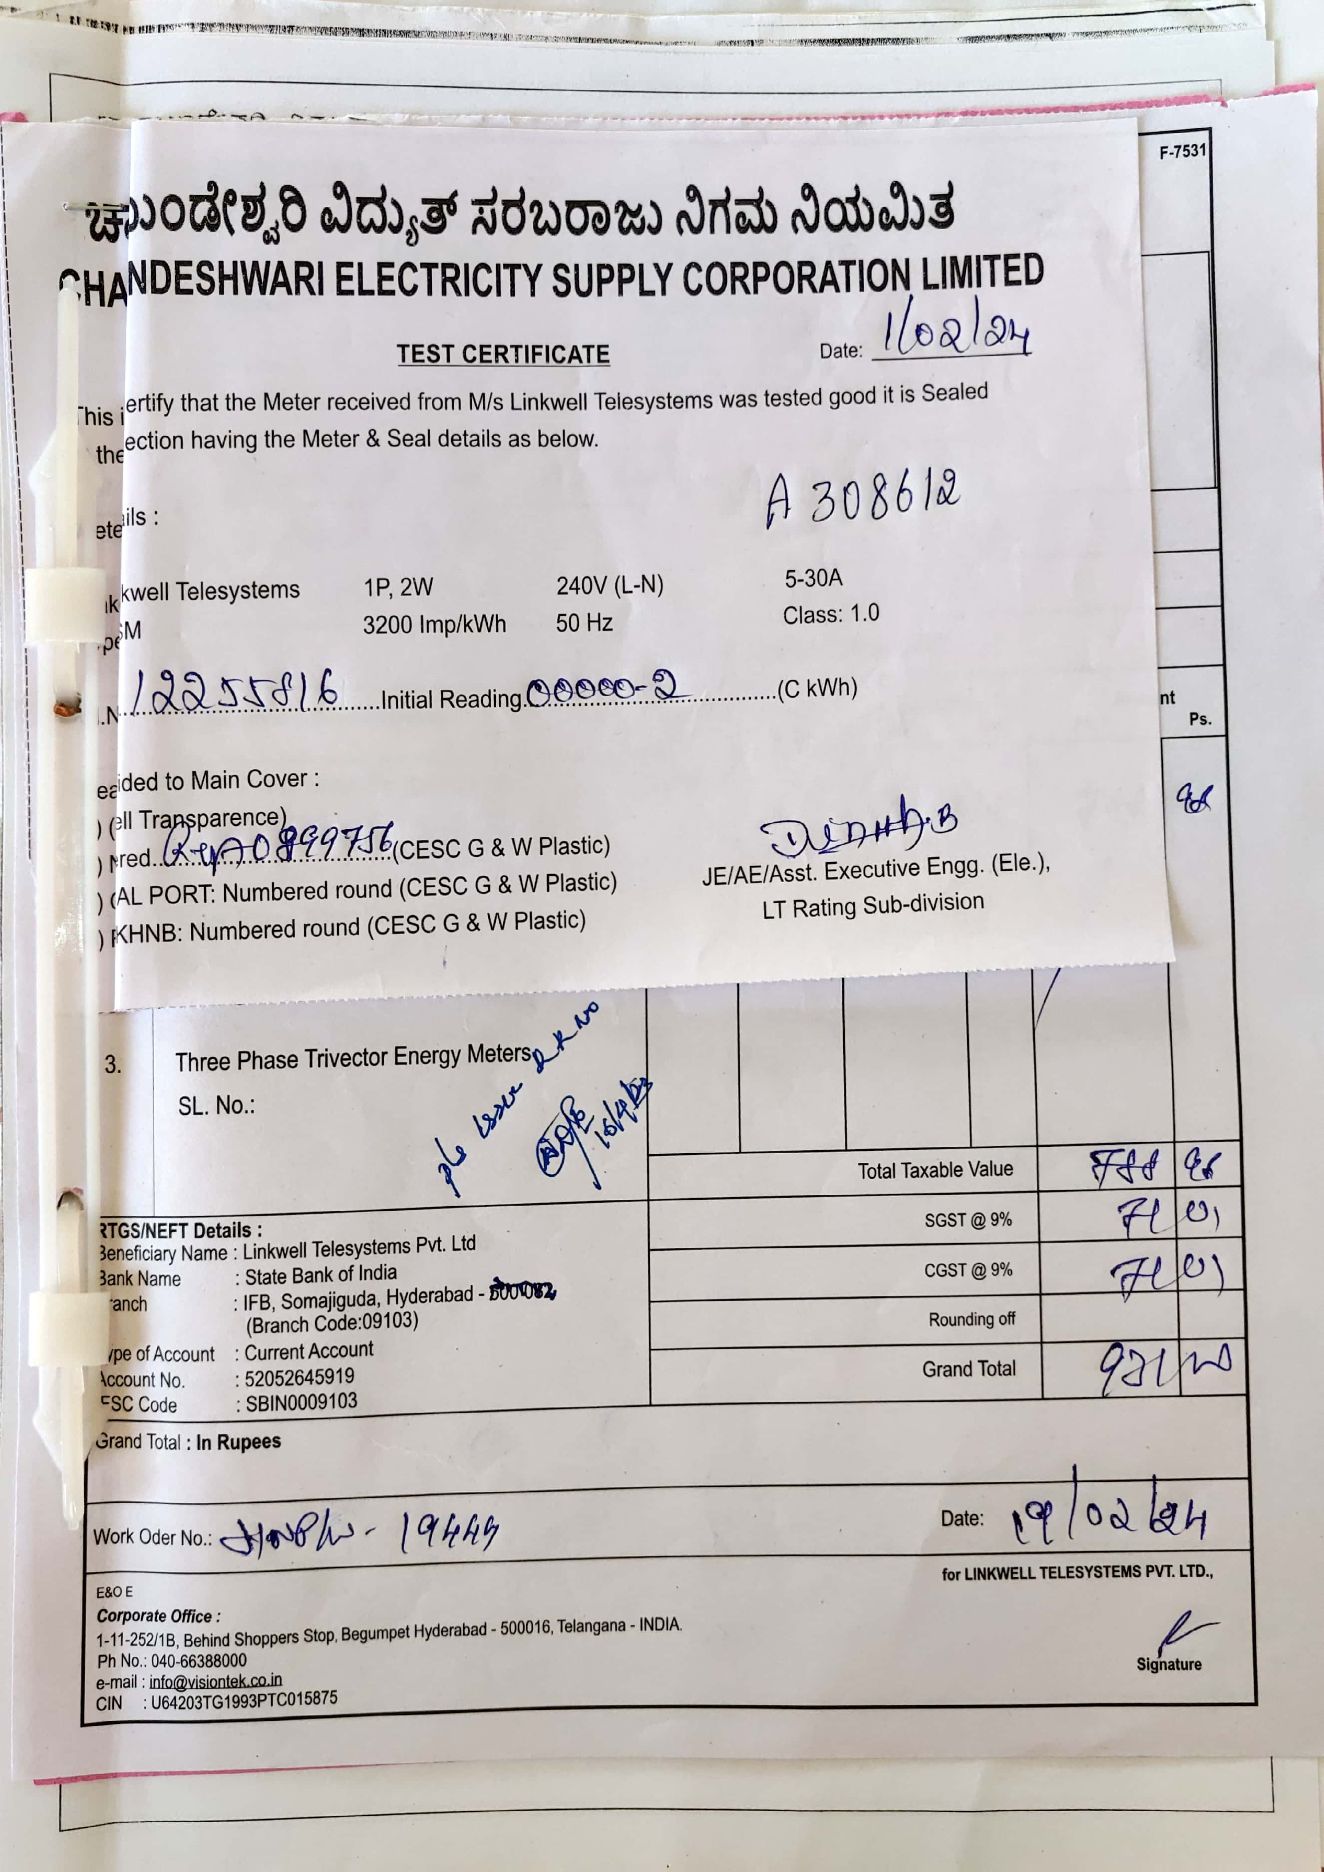 F-7531
ಚಾಮುಂಡೇಶ್ವರಿ ವಿದ್ಯುತ್ ಸರಬರಾಜು ನಿಗಮ ನಿಯಮಿತ
CHANDESHWARI ELECTRICITY SUPPLY CORPORATION LIMITED
TEST CERTIFICATE
Date: 1/02/24
This i ertify that the Meter received from M/s Linkwell Telesystems was tested good it is Sealed
the ection having the Meter & Seal details as below.
A 308612
ete ils :
kwell Telesystems 1P, 2W 240V (L-N) 5-30A
SM 3200 Imp/kWh 50 Hz Class: 1.0
.N 12255816 Initial Reading 00000-2 (C kWh)
nt
Ps.
ided to Main Cover :
ell Transparence)
red 0899756 (CESC G & W Plastic)
AL PORT: Numbered round (CESC G & W Plastic)
KHNB: Numbered round (CESC G & W Plastic)
JE/AE/Asst. Executive Engg. (Ele.),
LT Rating Sub-division
3. Three Phase Trivector Energy Meters
SL. No.:
R R No
Total Taxable Value 788 98
SGST @ 9% 71 01
CGST @ 9% 71 01
Rounding off
Grand Total 931 00
RTGS/NEFT Details :
Beneficiary Name : Linkwell Telesystems Pvt. Ltd
Bank Name : State Bank of India
ranch : IFB, Somajiguda, Hyderabad -
(Branch Code:09103)
ype of Account : Current Account
Account No. : 52052645919
FSC Code : SBIN0009103
Grand Total : In Rupees
Work Oder No.: - 19449
Date: 19/02/24
for LINKWELL TELESYSTEMS PVT. LTD.,
E&O E
Corporate Office :
1-11-252/1B, Behind Shoppers Stop, Begumpet Hyderabad - 500016, Telangana - INDIA.
Ph No.: 040-66388000
e-mail : info@visiontek.co.in
CIN : U64203TG1993PTC015875
Signature